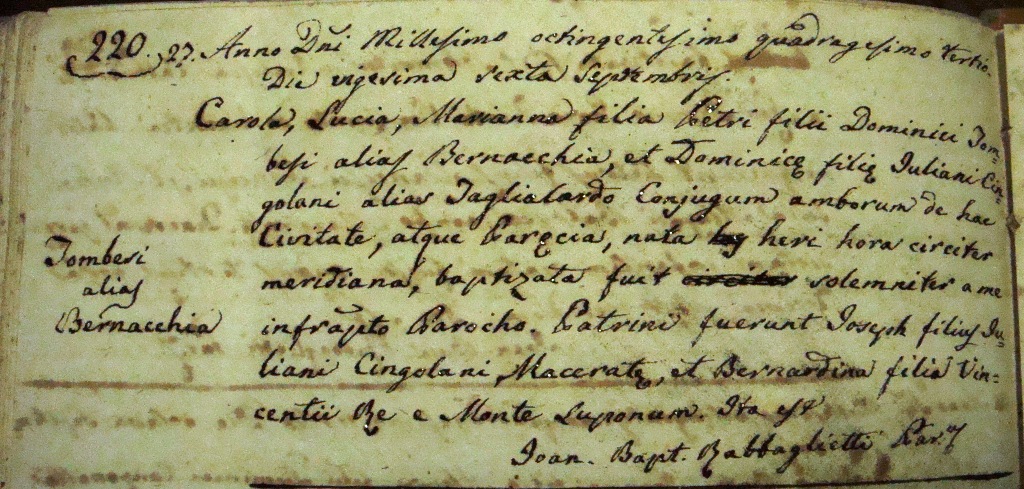 220. 27. Anno Dñi Millesimo octingentesimo quadragesimo tertio.
Die vigesima sexta Septembris.
Carola, Lucia, Marianna filia Petri filii Dominici Tom=
besi alias Bernacchia, et Dominicę filię Iuliani Cin=
golani alias Taglialardo Conjugum amborum de hac
Civitate, atque Paroecia, nata heri hora circiter
meridiana, baptizata fuit circiter solemniter a me
infrapto Parocho. Patrini fuerunt Joseph filius Iu=
liani Cingolani, Maceratę, et Bernardina filia Vin=
centii Re e Monte Luponum. Ita est
Ioan. Bapt. Rabbaglietti Par.
Tombesi
alias
Bernacchia